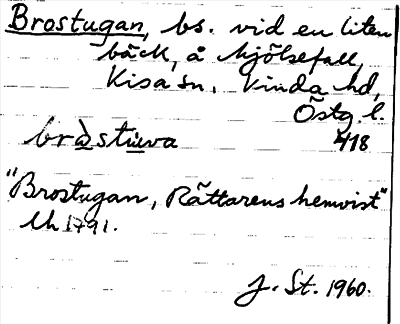 Brostugan, bs. vid en liten
bäck, å Hjölsefall,
Kisa sn, Kinda hd,
Östg. l.
bròstu̇va 418
"Brostugan, Rättarens hemvist"
Mh 1791.
J. St. 1960.